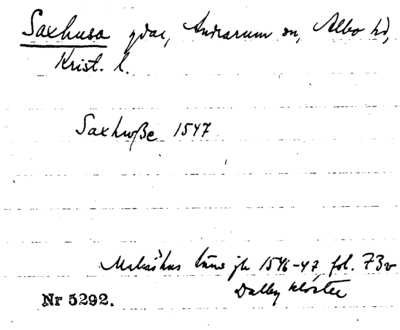 Saxhusa gdar, Andrarum sn, Albo hd,
Krist. l.
Saxhuße 1547
Malmöhus läns jb 1546-47 fol. 73v
Dalby kloster
Nr 5292.